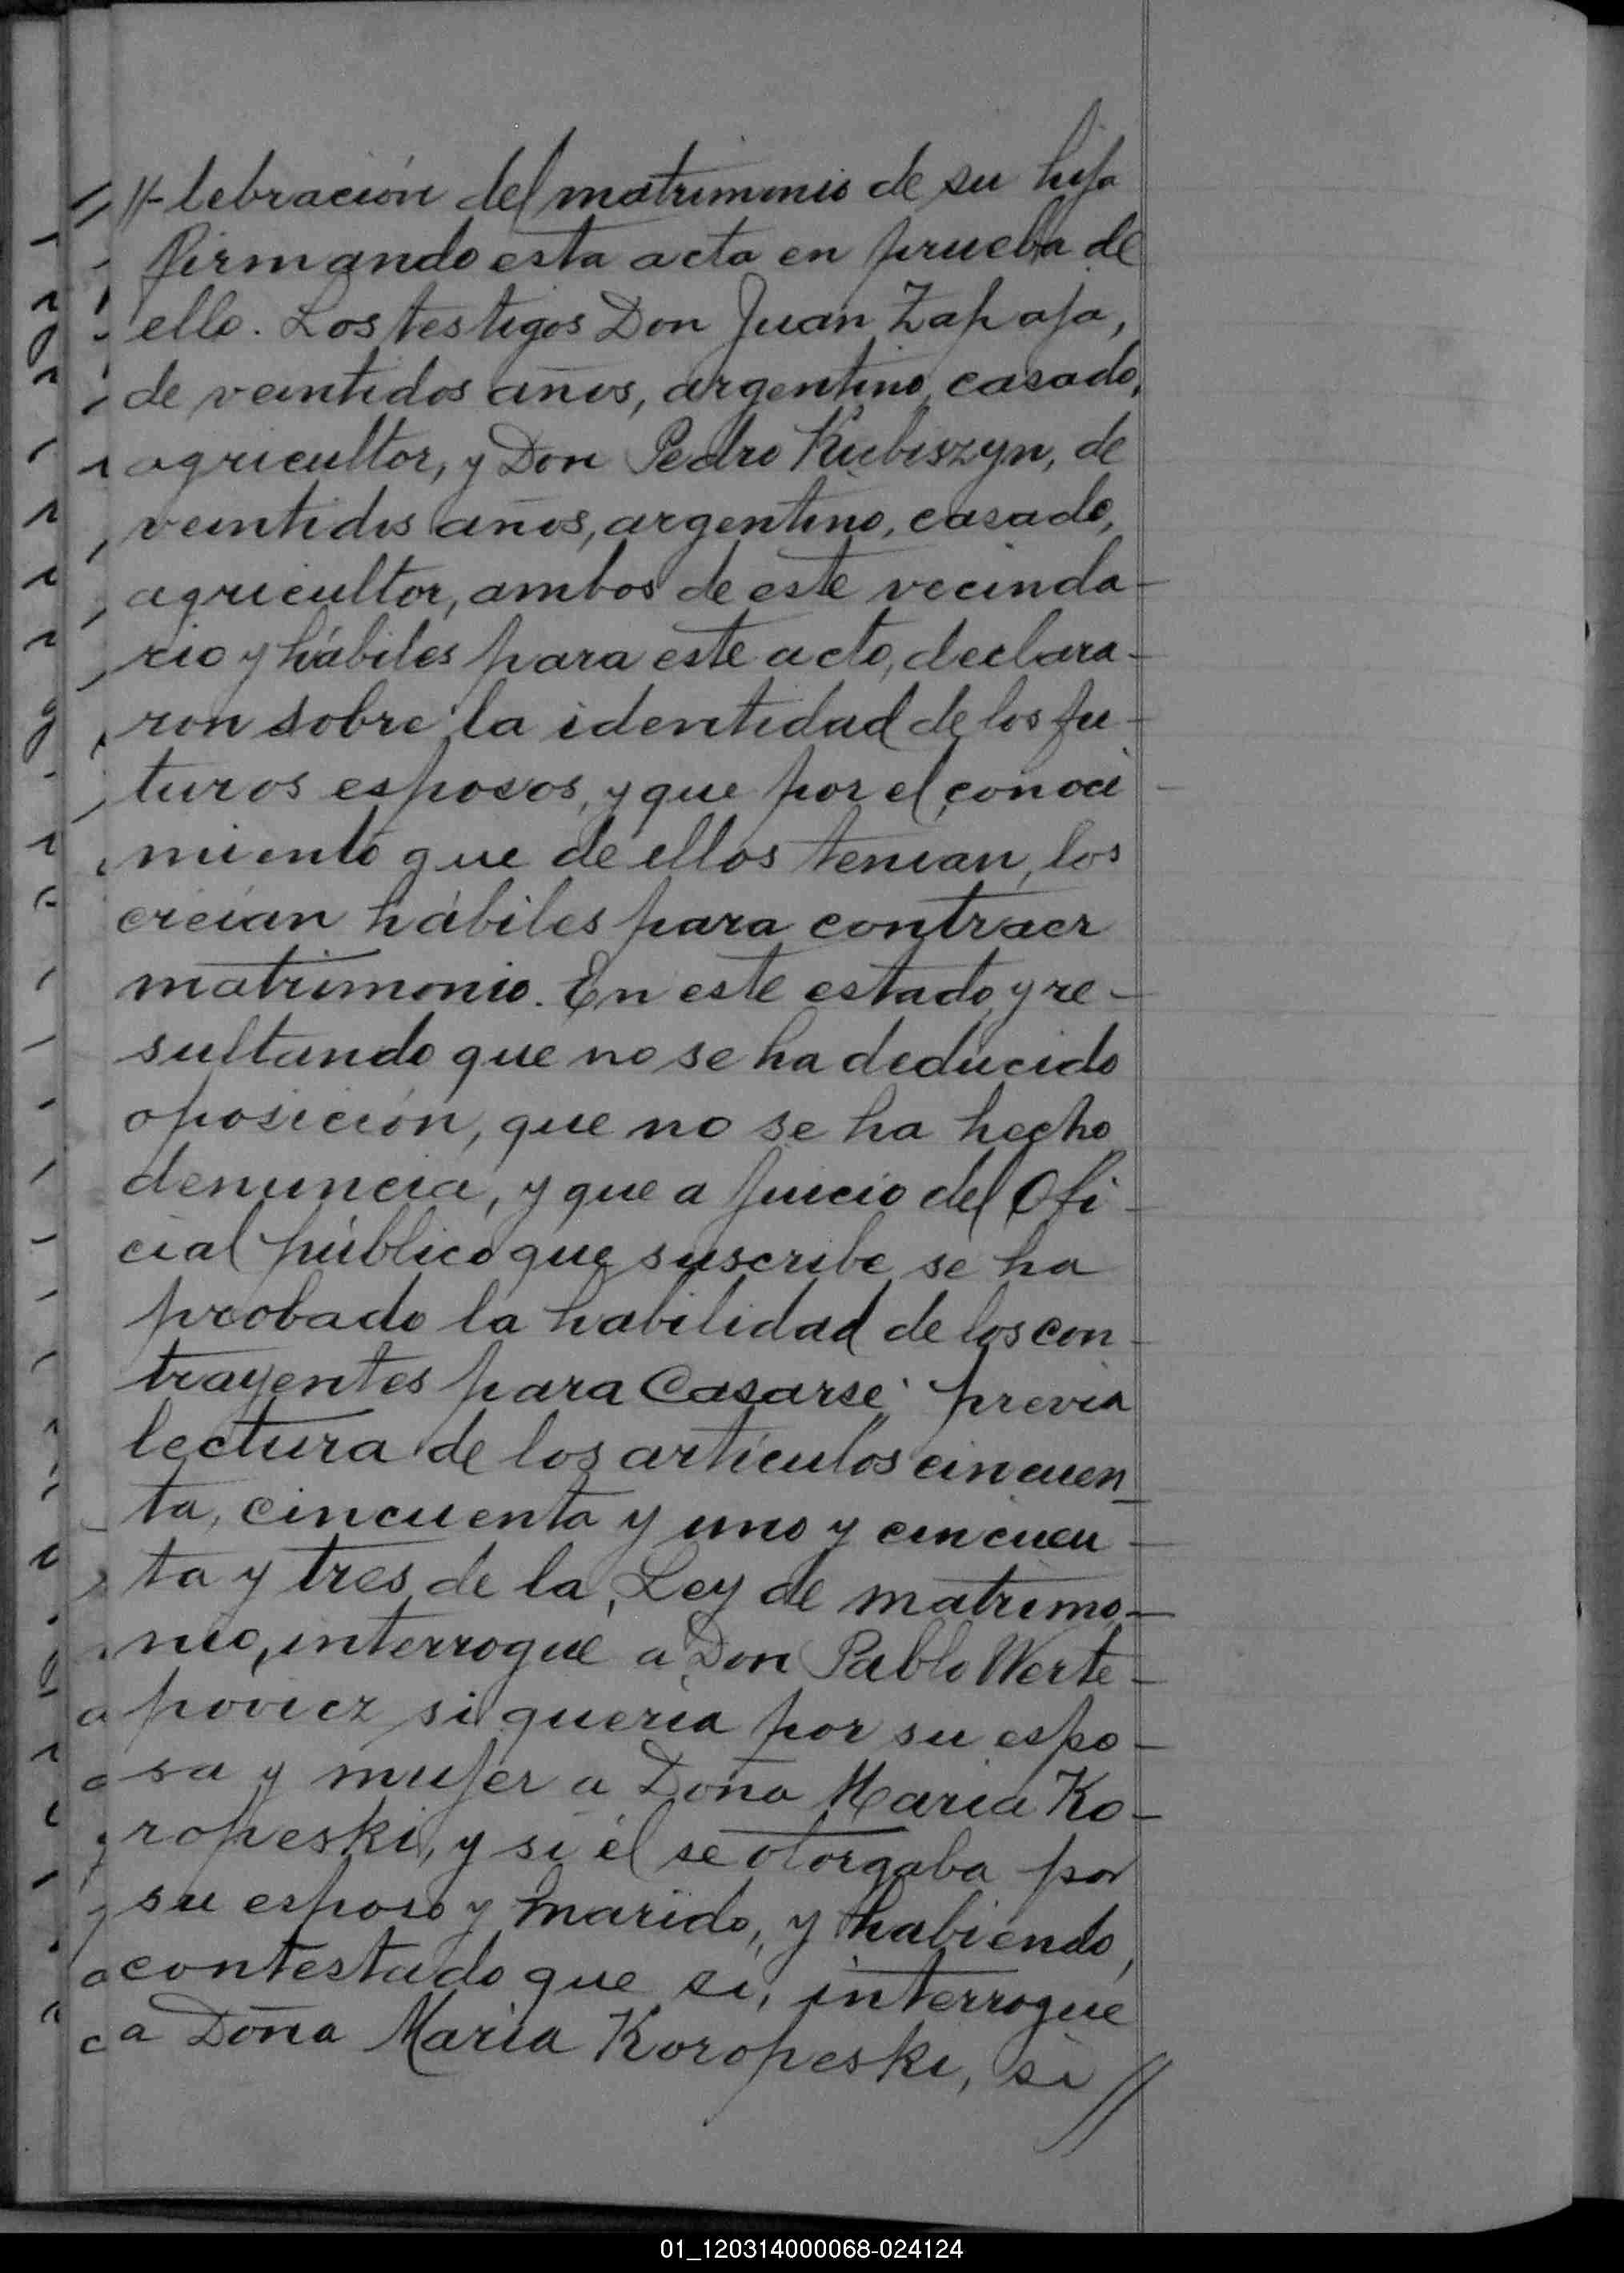 //-lebración del matrimonio de su hija
firmando esta acta en prueba de
ello. Los testigos Don Juan Zapaja,
de veintidos años, argentino, casado,
agricultor, y Don Pedro Kubiszyn, de
veintidos años, argentino, casado,
agricultor, ambos de este vecinda-
rio y hábiles para este acto, declara-
ron sobre la identidad de los fu-
turos esposos, y que por el conoci-
miento que de ellos tenian, los
creían hábiles para contraer
matrimonio. En este estado y re-
sultando que no se ha deducido
oposición, que no se ha hecho
denuncia, y que a juicio del Ofi-
cial público que suscribe se ha
probado la habilidad de los con-
trayentes para Casarse; previa
lectura de los artículos cincuen-
ta, cincuenta y uno y cincuen-
ta y tres de la Ley de matrimo-
nio, interrogué a Don Pablo Werte-
poviez si quería por su espo-
sa y mujer a Doña María Ko-
ropeski, y si él se otorgaba por
su esposo y marido, y habiendo
contestado que si, interrogué
a Doña María Koropeski, si //
01_120314000068-024124